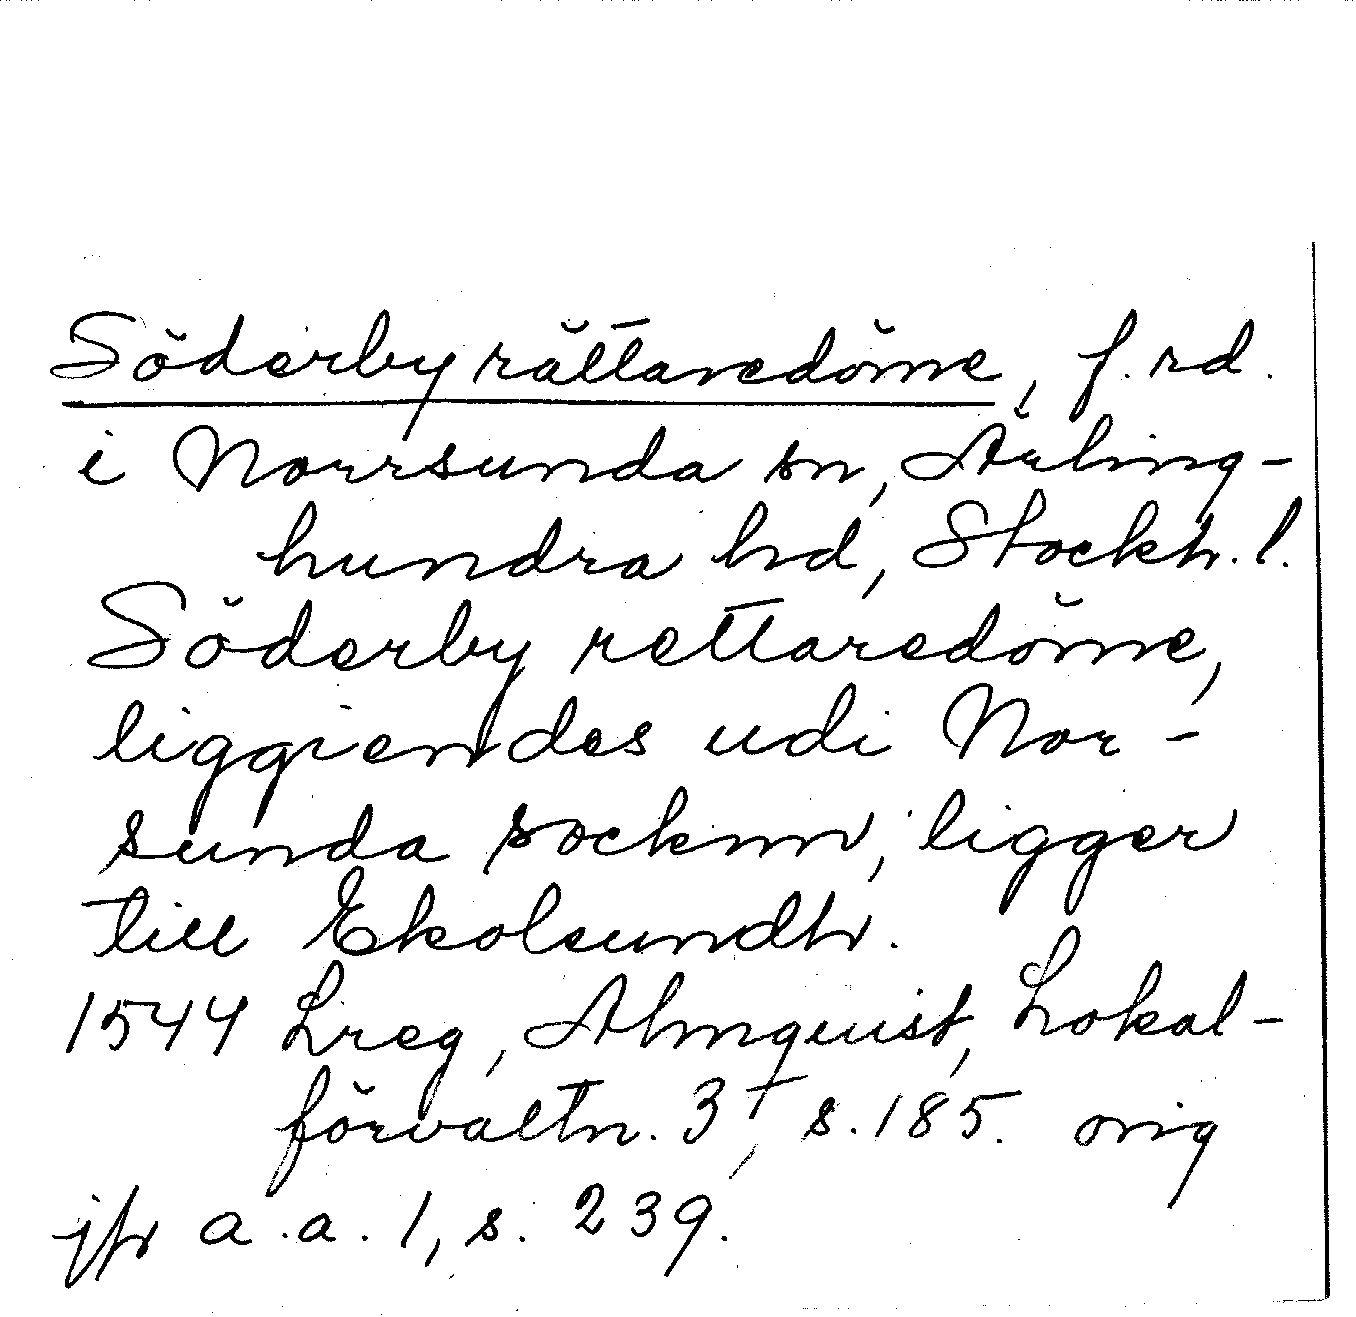 Söderby rättaredöme, f. rd.
i Norrsunda sn, Ärling-
hundra hd, Stockh. l.
Söderby rettaredöme,
liggiendes udi Nor-
sunda socknn, ligger
till Ekolsundh.
1544 Lreg, Almquist, Lokal-
förvaltn. 3†, s. 185. orig
jfr a.a. 1, s. 239.